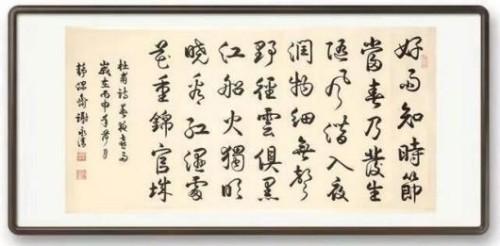 好雨知時節
當春乃發生
隨風潛入夜
潤物細無聲
野徑雲俱黑
江船火獨明
曉看紅濕處
花重錦官城
杜甫詩春夜喜雨
歲在丙申年月